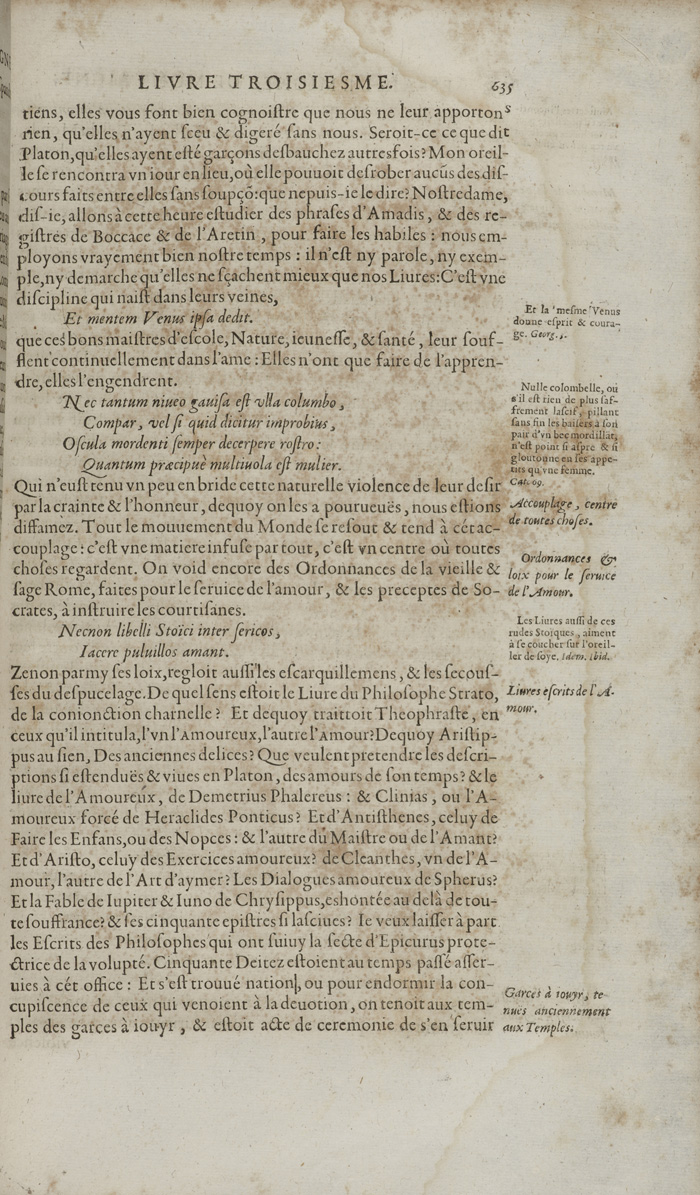 LIVRE TROISIESME.
635
tiens, elles vous font bien cognoiſtre que nous ne leur apportons
rien, qu'elles n'ayent ſceu & digeré ſans nous. Seroit-ce ce que dit
Platon, qu'elles ayent eſté garçons deſbauchez autresfois? Mon oreil-
le ſe rencontra vn iour en lieu, où elle pouuoit deſrober aucũs des diſ-
cours faits entre elles ſans ſoupçõ: que ne puis-ie le dire? Noſtredame,
diſ-ie, allons à cette heure eſtudier des phraſes d'Amadis, & des re-
giſtres de Boccace & de l'Aretin, pour faire les habiles: nous em-
ployons vrayement bien noſtre temps: il n'eſt ny parole, ny exem-
ple, ny demarche qu'elles ne ſçachent mieux que nos Liures: C'eſt vne
diſcipline qui naiſt dans leurs veines,
Et mentem Venus ipſa dedit.
que ces bons maiſtres d'eſcole, Nature, ieuneſſe, & ſanté, leur ſouf-
flent continuellement dans l'ame: Elles n'ont que faire de l'appren-
dre, elles l'engendrent.
Nec tantum niueo gauiſa eſt vlla columbo,
Compar, vel ſi quid dicitur improbius,
Oſcula mordenti ſemper decerpere roſtro:
Quantum præcipuè multiuola eſt mulier.
Qui n'euſt tenu vn peu en bride cette naturelle violence de leur deſir
par la crainte & l'honneur, dequoy on les a pourueuës, nous eſtions
diffamez. Tout le mouuement du Monde ſe reſout & tend à cét ac-
couplage: c'eſt vne matiere infuſe par tout, c'eſt vn centre où toutes
choſes regardent. On void encore des Ordonnances de la vieille &
ſage Rome, faites pour le ſeruice de l'amour, & les preceptes de So-
crates, à inſtruire les courtiſanes.
Necnon libelli Stoïci inter ſericos,
Iacere puluillos amant.
Zenon parmy ſes loix, regloit auſſi les eſcarquillemens, & les ſecouſ-
ſes du deſpucelage. De quel ſens eſtoit le Liure du Philoſophe Strato,
de la conionction charnelle? Et dequoy traittoit Theophraſte, en
ceux qu'il intitula, l'vn l'Amoureux, l'autre l'Amour? Dequoy Ariſtip-
pus au ſien, Des anciennes delices? Que veulent pretendre les deſcri-
ptions ſi eſtenduës & viues en Platon, des amours de ſon temps? & le
liure de l'Amoureux, de Demetrius Phalereus: & Clinias, ou l'A-
moureux forcé de Heraclides Ponticus? Et d'Antiſthenes, celuy de
Faire les Enfans, ou des Nopces: & l'autre du Maiſtre ou de l'Amant?
Et d'Ariſto, celuy des Exercices amoureux? de Cleanthes, vn de l'A-
mour, l'autre de l'Art d'aymer? Les Dialogues amoureux de Spherus?
Et la Fable de Iupiter & Iuno de Chryſippus, eshontée au delà de tou-
te ſouffrance? & ſes cinquante epiſtres ſi laſciues? Ie veux laiſſer à part
les Eſcrits des Philoſophes qui ont ſuiuy la ſecte d'Epicurus prote-
ctrice de la volupté. Cinquante Deitez eſtoient au temps paſſé aſſer-
uies à cét office: Et s'eſt trouué nation, ou pour endormir la con-
cupiſcence de ceux qui venoient à la deuotion, on tenoit aux tem-
ples des garces à iouyr, & eſtoit acte de ceremonie de s'en ſeruir
Et la meſme Venus
donne eſprit & coura-
ge. Georg.
Nulle colombelle, ou
s'il eſt rien de plus ſaf-
frement laſcif, pillant
ſans fin les baiſers à ſon
pair d'vn bec mordillât,
n'eſt point ſi aſpre & ſi
gloutonne en ſes appe-
tits qu'vne femme.
Cat. 69.
Accouplage, centre
de toutes choſes.
Ordonnances &
loix pour le ſeruice
de l'Amour.
Les Liures auſſi de ces
rudes Stoïques, aiment
à ſe coucher ſur l'oreil-
ler de ſoye. Idem. Ibid.
Liures eſcrits de l'A-
mour.
Garces à iouyr, te-
nues anciennement
aux Temples.